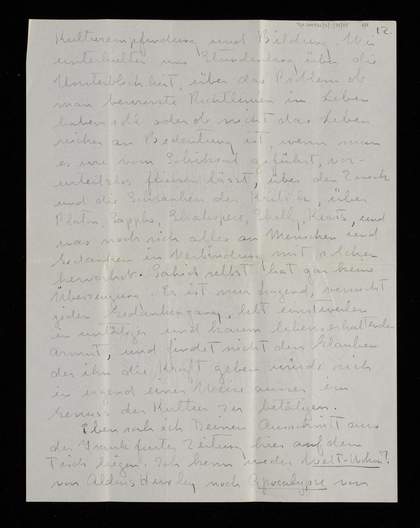 12.
Kulturempfindung und Bildung. Wir
unterhalten uns stundenlang über die
Unsterblichkeit, über das Problem ob
man bewusste Richtlinien im Leben
haben soll oder ob nicht das Leben
reicher an Bedeutung ist, wenn man
es wie vom Schicksal geführt, vor-
urteilslos fliessen lässt, über den Zweck
und die Schranken der Kritik, über
Plato, Sappho, Shakespere, Shelly, Keats, und
was noch sich alles an Menschen und
Gedanken in Verbindung mit solchen
hervorhebt. selbst hat gar keine
Überzeugung. Er ist nur fragend, verneint
jeden Gedankengang, lebt einstweilen
in untätiger und kaum lebens erhaltender
Armut, und findet nicht den Glauben
der ihm die Kraft geben würde sich
in irgend einer Weise ausser im
Genuss der Kultur zu betätigen.
Eben sah ich Deinen Ausschnitt aus
der Frankfurter Zeitung hier auf dem
Tisch liegen. Ich kenn weder
von Aldous Huxley noch Apocalypse von